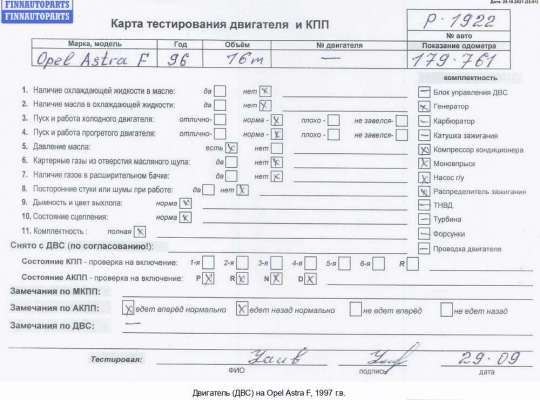 FINNAUTOPARTS
FINNAUTOPARTS
Карта тестирования двигателя и КПП
P-1922
№ авто
Марка, модель Год Объём № двигателя Показание одометра
Opel Astra F 96 16m — 179-761
комплектность
1. Наличие охлаждающей жидкости в масле: да нет x
— Блок управления ДВС
2. Наличие масла в охлаждающей жидкости: да нет x
x Генератор
3. Пуск и работа холодного двигателя: отлично- норма - x плохо - не завелся-
— Карбюратор
4. Пуск и работа прогретого двигателя: отлично- норма - x плохо - не завелся-
— Катушка зажигания
5. Давление масла: есть x нет
x Компрессор кондиционера
6. Картерные газы из отверстия масляного щупа: да нет x
x Моновпрыск
7. Наличие газов в расширительном бачке: да нет x
x Насос г/у
8. Посторонние стуки или шумы при работе: да нет x
x Распределитель зажигания
9. Дымность и цвет выхлопа: норма x
— ТНВД
10. Состояние сцепления: норма x
— Турбина
11. Комплектность : полная x
— Форсунки
Снято с ДВС (по согласованию!):
— Проводка двигателя
Состояние КПП - проверка на включение: 1-я 2-я 3-я 4-я 5-я 6-я R
Состояние АКПП - проверка на включение: P x R x N x D x
Замечания по МКПП:
Замечания по АКПП: x едет вперёд нормально x едет назад нормально не едет вперёд не едет назад
Замечания по ДВС: —
Тестировал: 29-09
ФИО подпись дата
Двигатель (ДВС) на Opel Astra F, 1997 г.в.